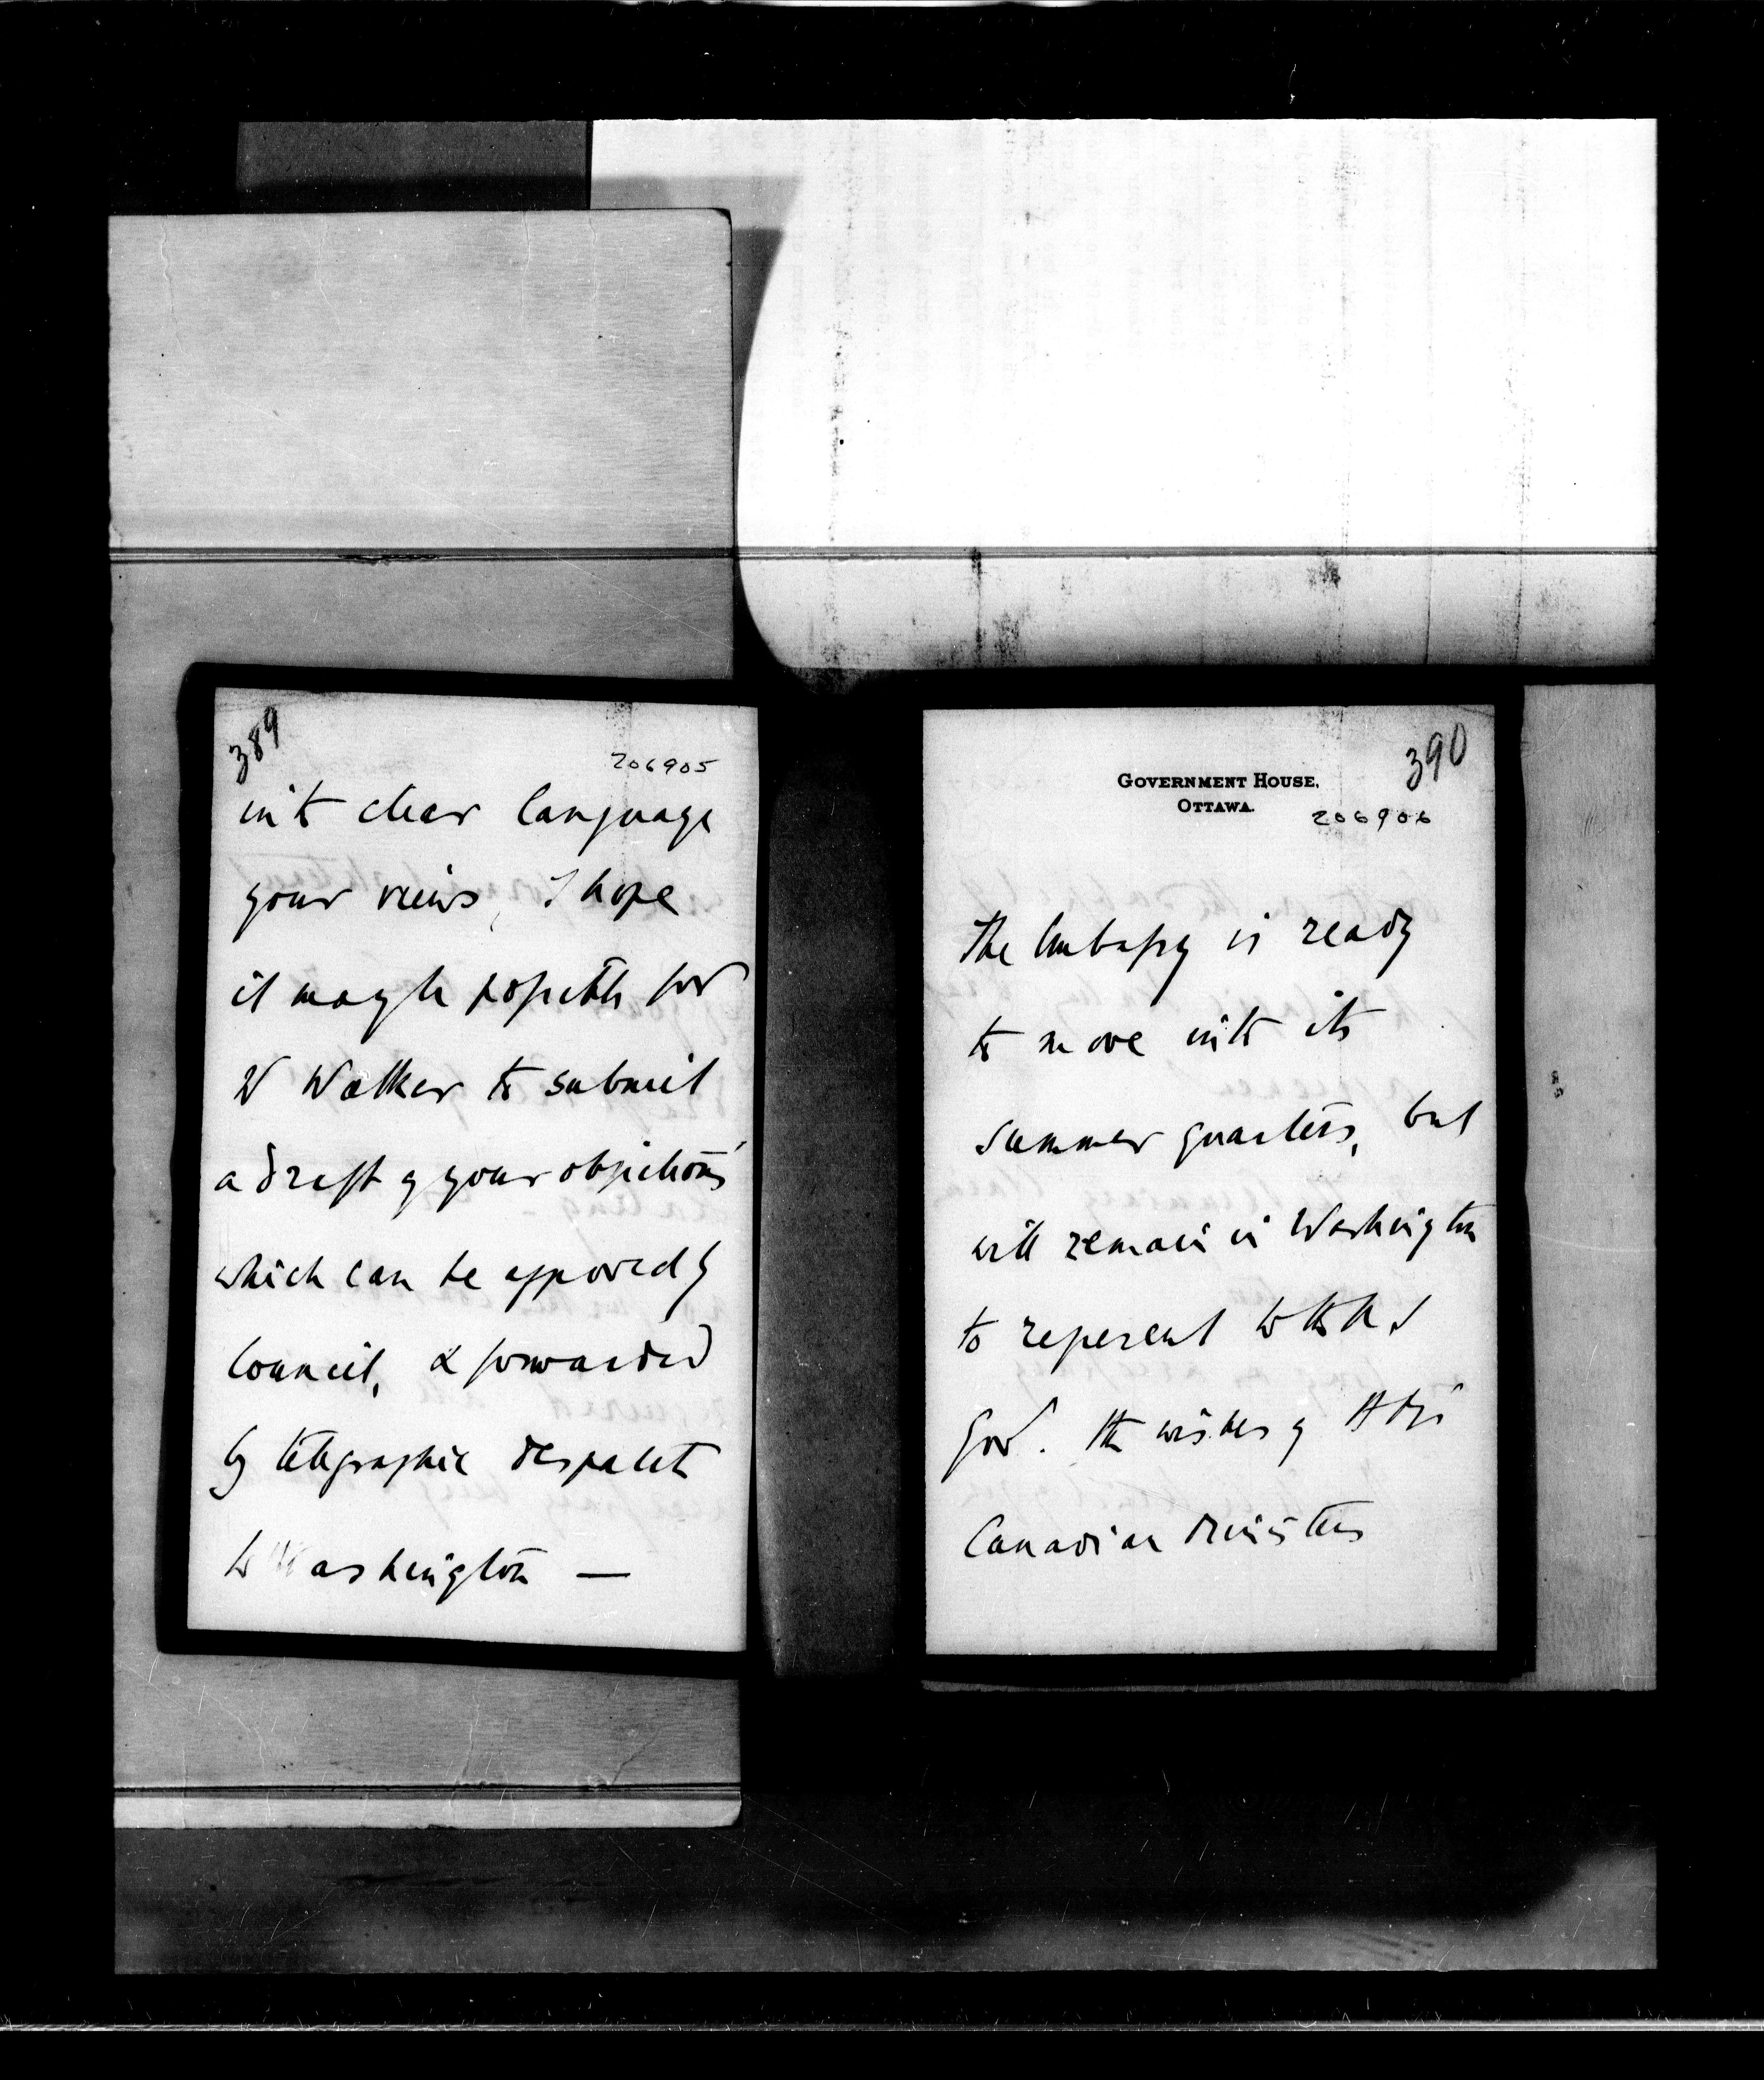 389
206905
into clear language
your views, I hope
it may be possible for
W Walker to submit
a draft of your objections
which can be approved by
Council, & forwarded
by telegraphic despatch
to Washington —
390
GOVERNMENT HOUSE,
OTTAWA.
206906
The Embassy is ready
to move into its
summer quarters, but
will remain in Washington
to represent to the U S
Gov. the wishes of HM's
Canadian Ministers